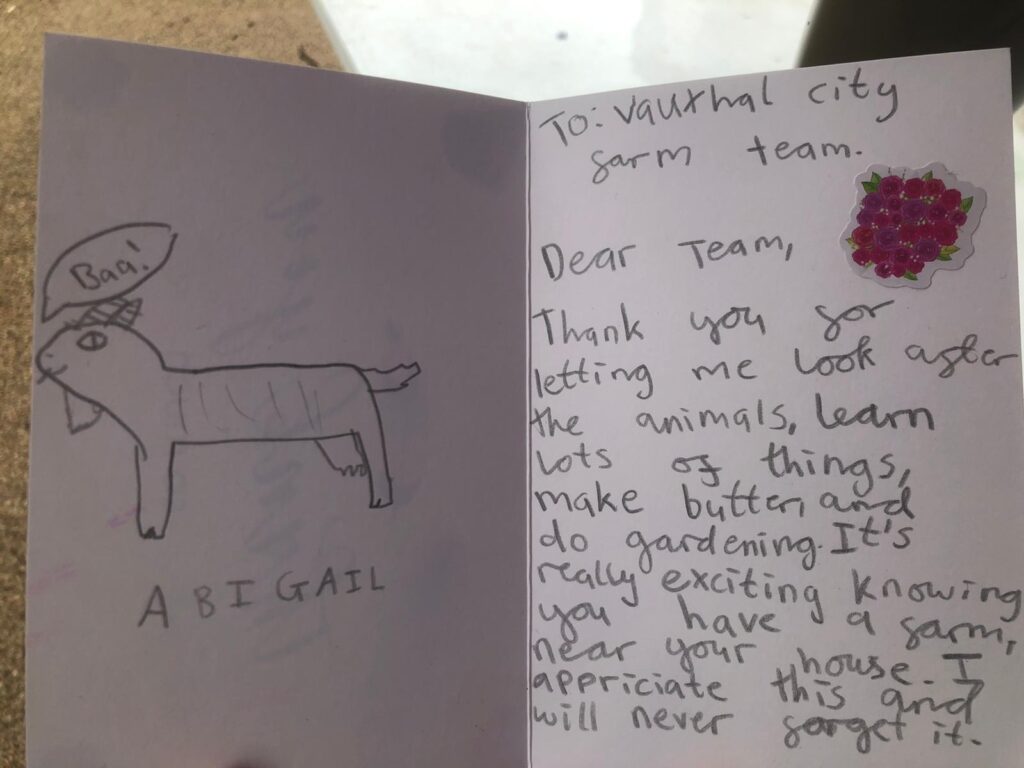 Baa!
ABIGAIL
To: Vauxhal city
farm team.
Dear Team,
Thank you for
letting me look after
the animals, learn
lots of things,
make butter, and
do gardening. It's
really exciting knowing
you have a farm,
near your house. I
appriciate this and
will never forget it.